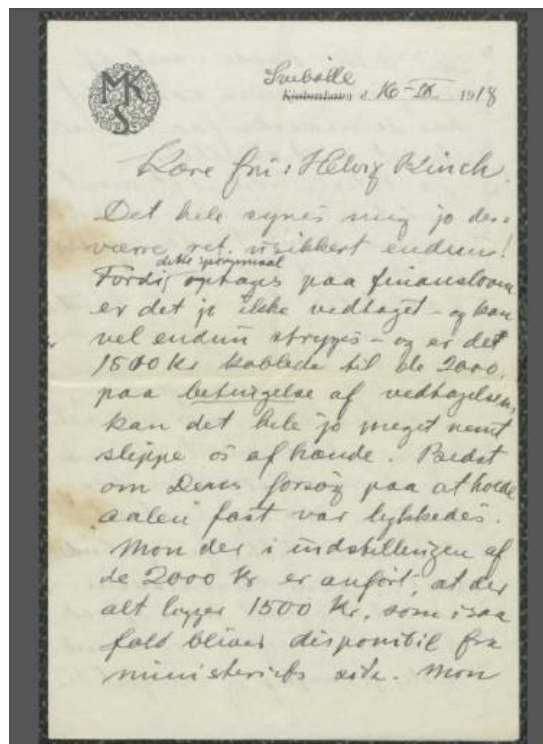 MKS
Svebølle
Kjøbenhavn d. 16-IX 1918
Kære fru: Helvig Kinch.
Det hele synes mig jo des-
værre ret usikkert endnu!
dette spørgsmaal
Fordig optages paa finansloven
er det jo ikke vedtaget - og kan
vel endnu stryges - og er det
1500 Kr koblede til de 2000,
paa betingelse af vedtagelsen,
kan det hele jo meget nemt
slippe os af hænde. Bedst
om Deres forsøg paa at holde
aalen fast var lykkedes.
Mon der i indstillingen af
de 2000 Kr er anført, at der
alt ligger 1500 Kr, som i saa
fald bliver disponibil fra
ministeriets side. Mon